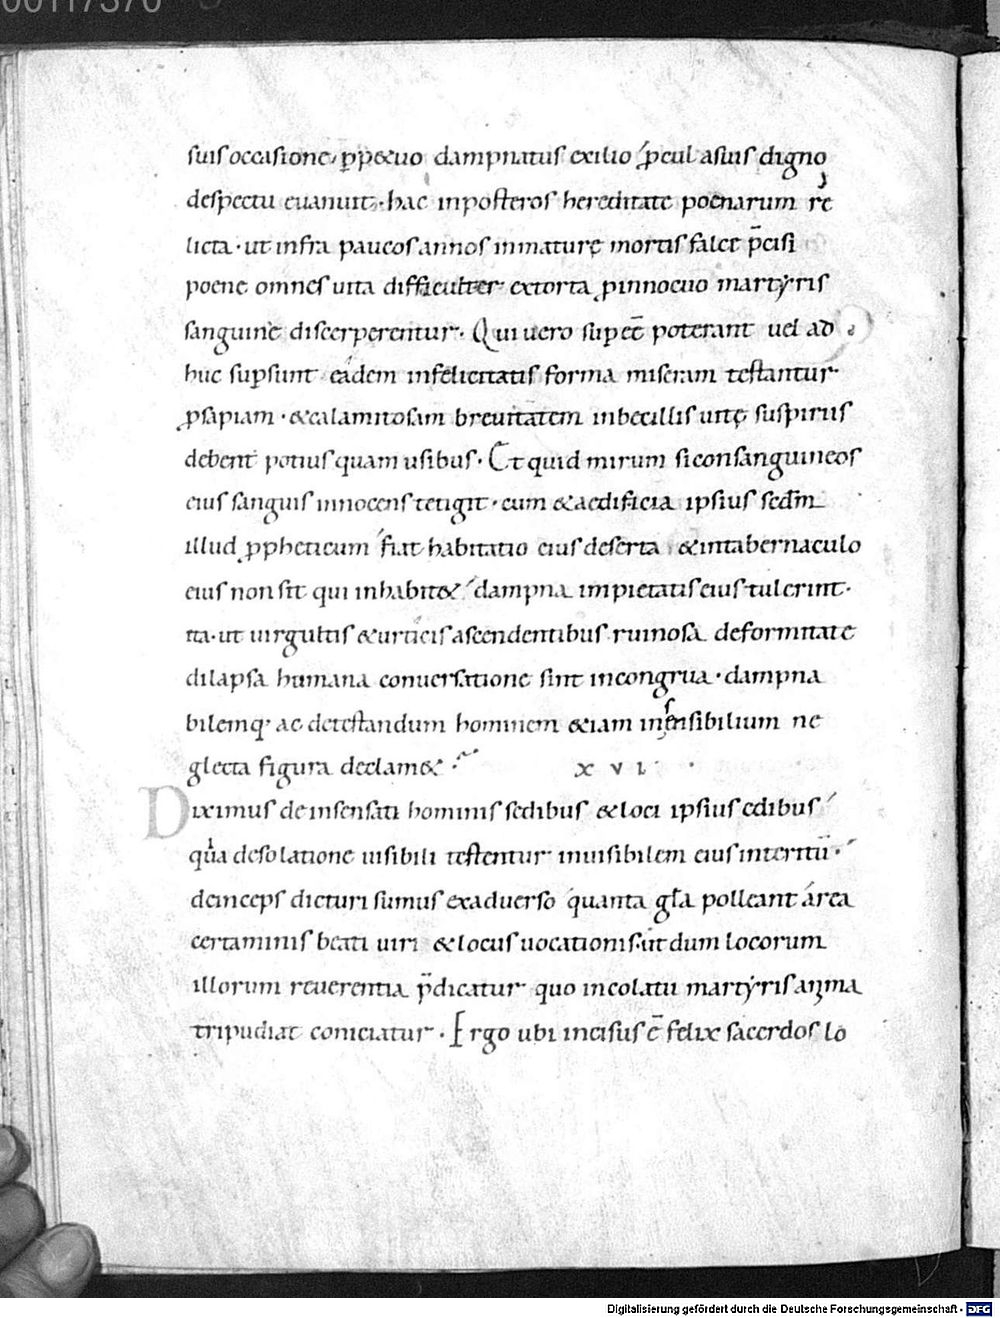 00117370
suis occasione, ꝑpetuo dampnatus exilio ꝓcul asuis digno
despectu euanuit, hac inposteros hereditate poenarum re
licta · ut infra paucos annos inmaturę mortis falce p̄cisi
poene omnes uita difficulter extorta ꝓinnocuo martyris
sanguine discerperentur · Qui uero supeē poterant uel ad
huc supsunt eadem infelicitatis forma miseram testantur
ꝓsapiam · & calamitosam breuitatem inbecillis uitę suspiriis
debent potius quam usibus · Et quid mirum siconsanguineos
eius sanguis innocens tetigit · cum & aedificia ipsius scdm̄
illud ꝓpheticum fiat habitatio eius deserta & intabernaculo
eius non sit qui inhabit& dampna impietatis eius tulerint ·
ita · ut uirgultis & urticis ascendentibus ruinosa deformitate
dilapsa humana conuersatione sint incongrua · dampna
bilemq· ac detestandum hominem &iam insensibilium ne
glecta figura declam& ·
x v i ·
Diximus de insensati hominis sedibus & loci ipsius edibus
qua desolatione uisibili testentur inuisibilem eius interitū ·
deinceps dicturi sumus exaduerso quanta gl̄a polleant area
certaminis beati uiri & locus uocationis · ut dum locorum
illorum reuerentia p̄dicatur quo incolatu martyris anima
tripudiat coniciatur · Ergo ubi incisus ē felix sacerdos lo
Digitalisierung gefördert durch die Deutsche Forschungsgemeinschaft - DFG